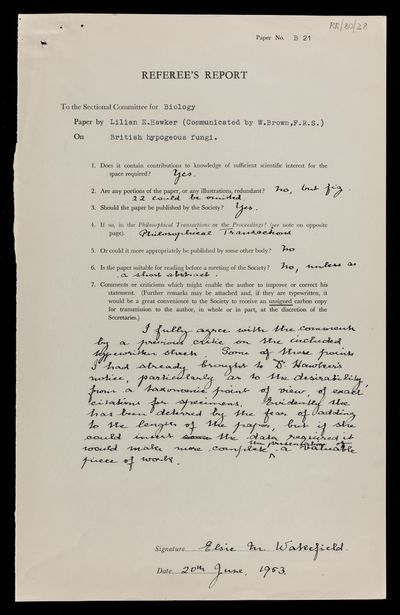 RR/80/28
Paper No. B 21
REFEREE'S REPORT
To the Sectional Committee for Biology
Paper by Lilian E.Hawker (Communicated by W.Brown,F.R.S.)
On British hypogeous fungi.
1. Does it contain contributions to knowledge of sufficient scientific interest for the
space required? Yes.
2. Are any portions of the paper, or any illustrations, redundant? No, but fig.
22 could be omitted.
3. Should the paper be published by the Society? Yes.
4. If so, in the Philosophical Transactions or the Proceedings? (see note on opposite
page). Philosophical Transactions
5. Or could it more appropriately be published by some other body? No
6. Is the paper suitable for reading before a meeting of the Society? No, unless as
a short abstract.
7. Comments or criticisms which might enable the author to improve or correct his
statement. (Further remarks may be attached and, if they are typewritten, it
would be a great convenience to the Society to receive an unsigned carbon copy
for transmission to the author, in whole or in part, at the discretion of the
Secretaries.)
I fully agree with the comments
by a previous critic on the included
typewritten sheets. Some of these points
I had already brought to Dr Hawker's
notice, particularly as to the desirability,
from a taxonomic point of view, of exact
citations for specimens. Evidently she
has been deterred by the fear of adding
to the length of the paper, but if she
could insert some the data required it
would make more complete the presentation of a valuable
piece of work.
Signature Elsie M. Wakefield
Date 20th June, 1953.